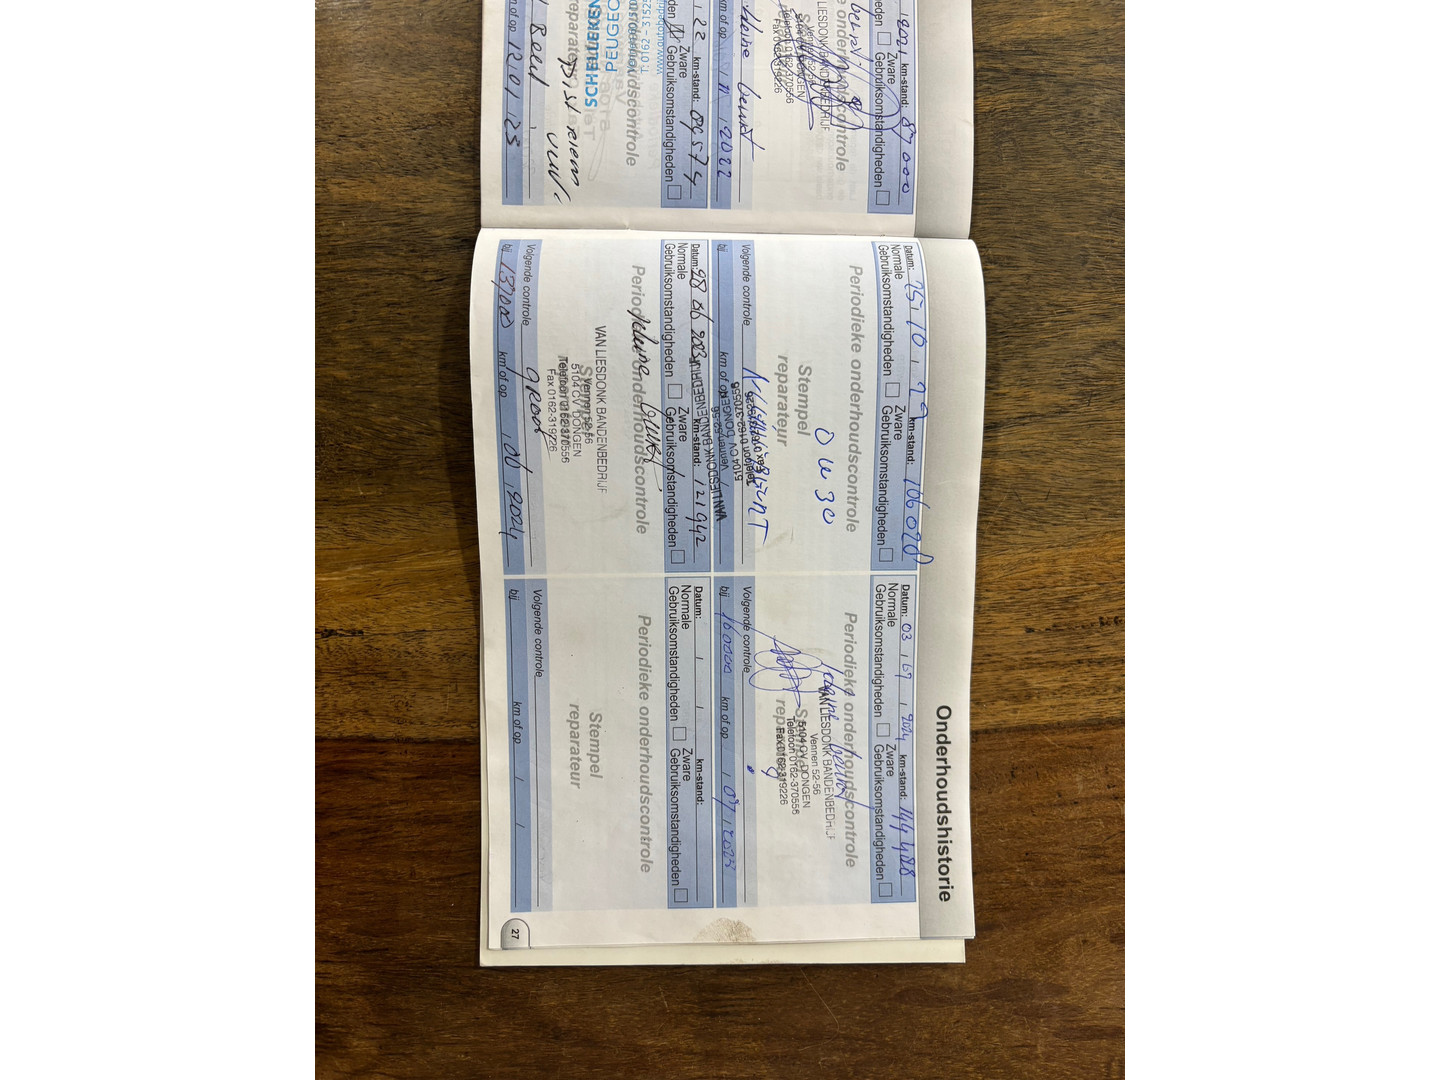 Onderhoudshistorie
2021 km-stand: 87000
Zware
Gebruiksomstandigheden
onderhoudscontrole
VAN LIESDONK BANDENBEDRIJF
Vennen 52-56
DONGEN
Telefoon 0162-370556
Fax 0162-319226
kleine beurt
km of op 11 2022
22 km-stand:
Zware
Gebruiksomstandigheden
onderhoudscontrole
PEUGEOT
km of op 12 01 23
Datum: 25 10 22 km-stand: 106028
Normale Zware
Gebruiksomstandigheden Gebruiksomstandigheden
Periodieke onderhoudscontrole
0W30
Stempel
reparateur
Volgende controle
bij km of op
VAN LIESDONK BANDENBEDRIJF
Vennen 52-56
5104 CV DONGEN
Telefoon 0162-370556
Datum: 28 06 2023 km-stand: 121942
Normale Zware
Gebruiksomstandigheden Gebruiksomstandigheden
Periodieke onderhoudscontrole
kleine beurt
VAN LIESDONK BANDENBEDRIJF
Vennen 52-56
5104 CV DONGEN
Telefoon 0162-370556
Fax 0162-319226
Volgende controle groot
bij km of op 06 2024
Datum: 03 07 2024 km-stand: 144488
Normale Zware
Gebruiksomstandigheden Gebruiksomstandigheden
Periodieke onderhoudscontrole
VAN LIESDONK BANDENBEDRIJF
Vennen 52-56
5104 CV DONGEN
Telefoon 0162-370556
Fax 0162-319226
Volgende controle
bij 160000 km of op 07
Datum: / / km-stand:
Normale Zware
Gebruiksomstandigheden Gebruiksomstandigheden
Periodieke onderhoudscontrole
Stempel
reparateur
Volgende controle
bij km of op / /
27